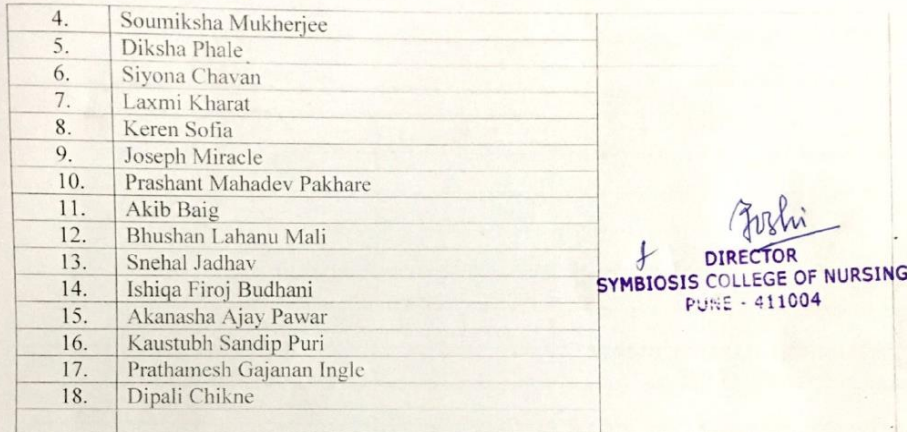 4. Soumiksha Mukherjee
5. Diksha Phale
6. Siyona Chavan
7. Laxmi Kharat
8. Keren Sofia
9. Joseph Miracle
10. Prashant Mahadev Pakhare
11. Akib Baig
12. Bhushan Lahanu Mali
13. Snehal Jadhav
14. Ishiqa Firoj Budhani
15. Akanasha Ajay Pawar
16. Kaustubh Sandip Puri
17. Prathamesh Gajanan Ingle
18. Dipali Chikne
Joshi
DIRECTOR
SYMBIOSIS COLLEGE OF NURSING
PUNE - 411004